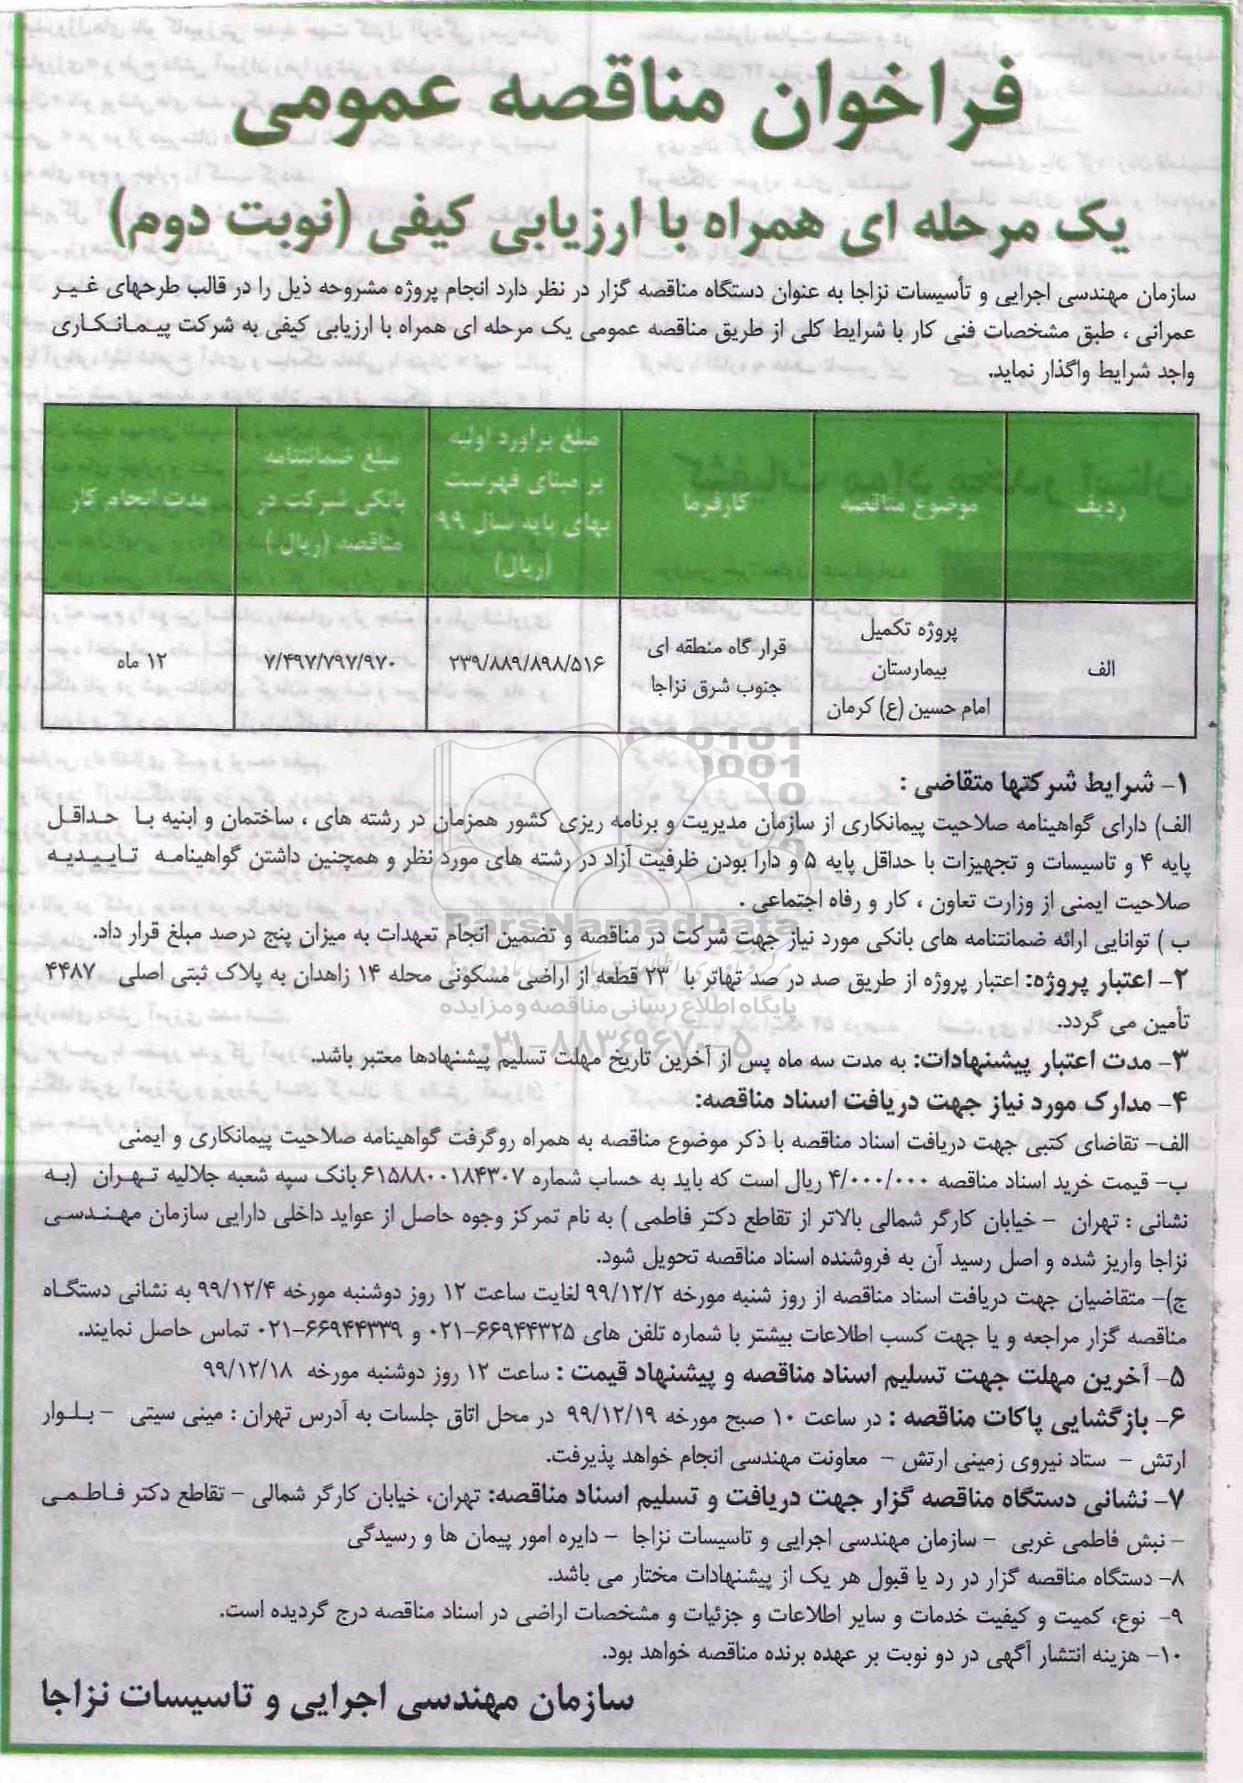 فراخوان مناقصه عمومی
یک مرحله ای همراه با ارزیابی کیفی (نوبت دوم)
سازمان مهندسی اجرایی و تأسیسات نزاجا به عنوان دستگاه مناقصه گزار در نظر دارد انجام پروژه مشروحه ذیل را در قالب طرحهای غیر
عمرانی ، طبق مشخصات فنی کار با شرایط کلی از طریق مناقصه عمومی یک مرحله ای همراه با ارزیابی کیفی به شرکت پیمانکاری
واجد شرایط واگذار نماید.
ردیف
موضوع مناقصه
کارفرما
مبلغ براورد اولیه
بر مبنای فهرست
بهای پایه سال ۹۹
(ریال)
مبلغ ضمانتنامه
بانکی شرکت در
مناقصه (ریال)
مدت انجام کار
الف
پروژه تکمیل
بیمارستان
امام حسین (ع) کرمان
قرار گاه منطقه ای
جنوب شرق نزاجا
۲۳۹/۸۸۹/۸۹۸/۵۱۶
۷/۴۹۷/۷۹۷/۹۷۰
۱۲ ماه
۱- شرایط شرکتها متقاضی :
الف) دارای گواهینامه صلاحیت پیمانکاری از سازمان مدیریت و برنامه ریزی کشور همزمان در رشته های ، ساختمان و ابنیه با حداقل
پایه ۴ و تاسیسات و تجهیزات با حداقل پایه ۵ و دارا بودن ظرفیت آزاد در رشته های مورد نظر و همچنین داشتن گواهینامه تاییدیه
صلاحیت ایمنی از وزارت تعاون ، کار و رفاه اجتماعی .
ParsNamadData
ب ) توانایی ارائه ضمانتنامه های بانکی مورد نیاز جهت شرکت در مناقصه و تضمین انجام تعهدات به میزان پنج درصد مبلغ قرار داد.
۲- اعتبار پروژه: اعتبار پروژه از طریق صد در صد تهاتر با ۲۳ قطعه از اراضی مسکونی محله ۱۴ زاهدان به پلاک ثبتی اصلی ۴۴۸۷
پایگاه اطلاع رسانی مناقصه و مزایده
تأمین می گردد.
۰۲۱-۸۸۳۴۹۶۷۰-۵
۳- مدت اعتبار پیشنهادات: به مدت سه ماه پس از آخرین تاریخ مهلت تسلیم پیشنهادها معتبر باشد.
۴- مدارک مورد نیاز جهت دریافت اسناد مناقصه:
الف- تقاضای کتبی جهت دریافت اسناد مناقصه با ذکر موضوع مناقصه به همراه روگرفت گواهینامه صلاحیت پیمانکاری و ایمنی
ب- قیمت خرید اسناد مناقصه ۴/۰۰۰/۰۰۰ ریال است که باید به حساب شماره ۶۱۵۸۸۰۰۱۸۴۳۰۷ بانک سپه شعبه جلالیه تهران (به
نشانی : تهران - خیابان کارگر شمالی بالاتر از تقاطع دکتر فاطمی ) به نام تمرکز وجوه حاصل از عواید داخلی دارایی سازمان مهندسی
نزاجا واریز شده و اصل رسید آن به فروشنده اسناد مناقصه تحویل شود.
ج)- متقاضیان جهت دریافت اسناد مناقصه از روز شنبه مورخه ۹۹/۱۲/۲ لغایت ساعت ۱۲ روز دوشنبه مورخه ۹۹/۱۲/۴ به نشانی دستگاه
مناقصه گزار مراجعه و یا جهت کسب اطلاعات بیشتر با شماره تلفن های ۶۶۹۴۴۳۲۵-۰۲۱ و ۶۶۹۴۴۳۳۹-۰۲۱ تماس حاصل نمایند.
۵- آخرین مهلت جهت تسلیم اسناد مناقصه و پیشنهاد قیمت : ساعت ۱۲ روز دوشنبه مورخه ۹۹/۱۲/۱۸
۶- بازگشایی پاکات مناقصه : در ساعت ۱۰ صبح مورخه ۹۹/۱۲/۱۹ در محل اتاق جلسات به آدرس تهران : مینی سیتی - بلوار
ارتش - ستاد نیروی زمینی ارتش - معاونت مهندسی انجام خواهد پذیرفت.
۷- نشانی دستگاه مناقصه گزار جهت دریافت و تسلیم اسناد مناقصه: تهران، خیابان کارگر شمالی - تقاطع دکتر فاطمی
- نبش فاطمی غربی - سازمان مهندسی اجرایی و تاسیسات نزاجا - دایره امور پیمان ها و رسیدگی
۸- دستگاه مناقصه گزار در رد یا قبول هر یک از پیشنهادات مختار می باشد.
۹- نوع، کمیت و کیفیت خدمات و سایر اطلاعات و جزئیات و مشخصات اراضی در اسناد مناقصه درج گردیده است.
۱۰- هزینه انتشار آگهی در دو نوبت بر عهده برنده مناقصه خواهد بود.
سازمان مهندسی اجرایی و تاسیسات نزاجا